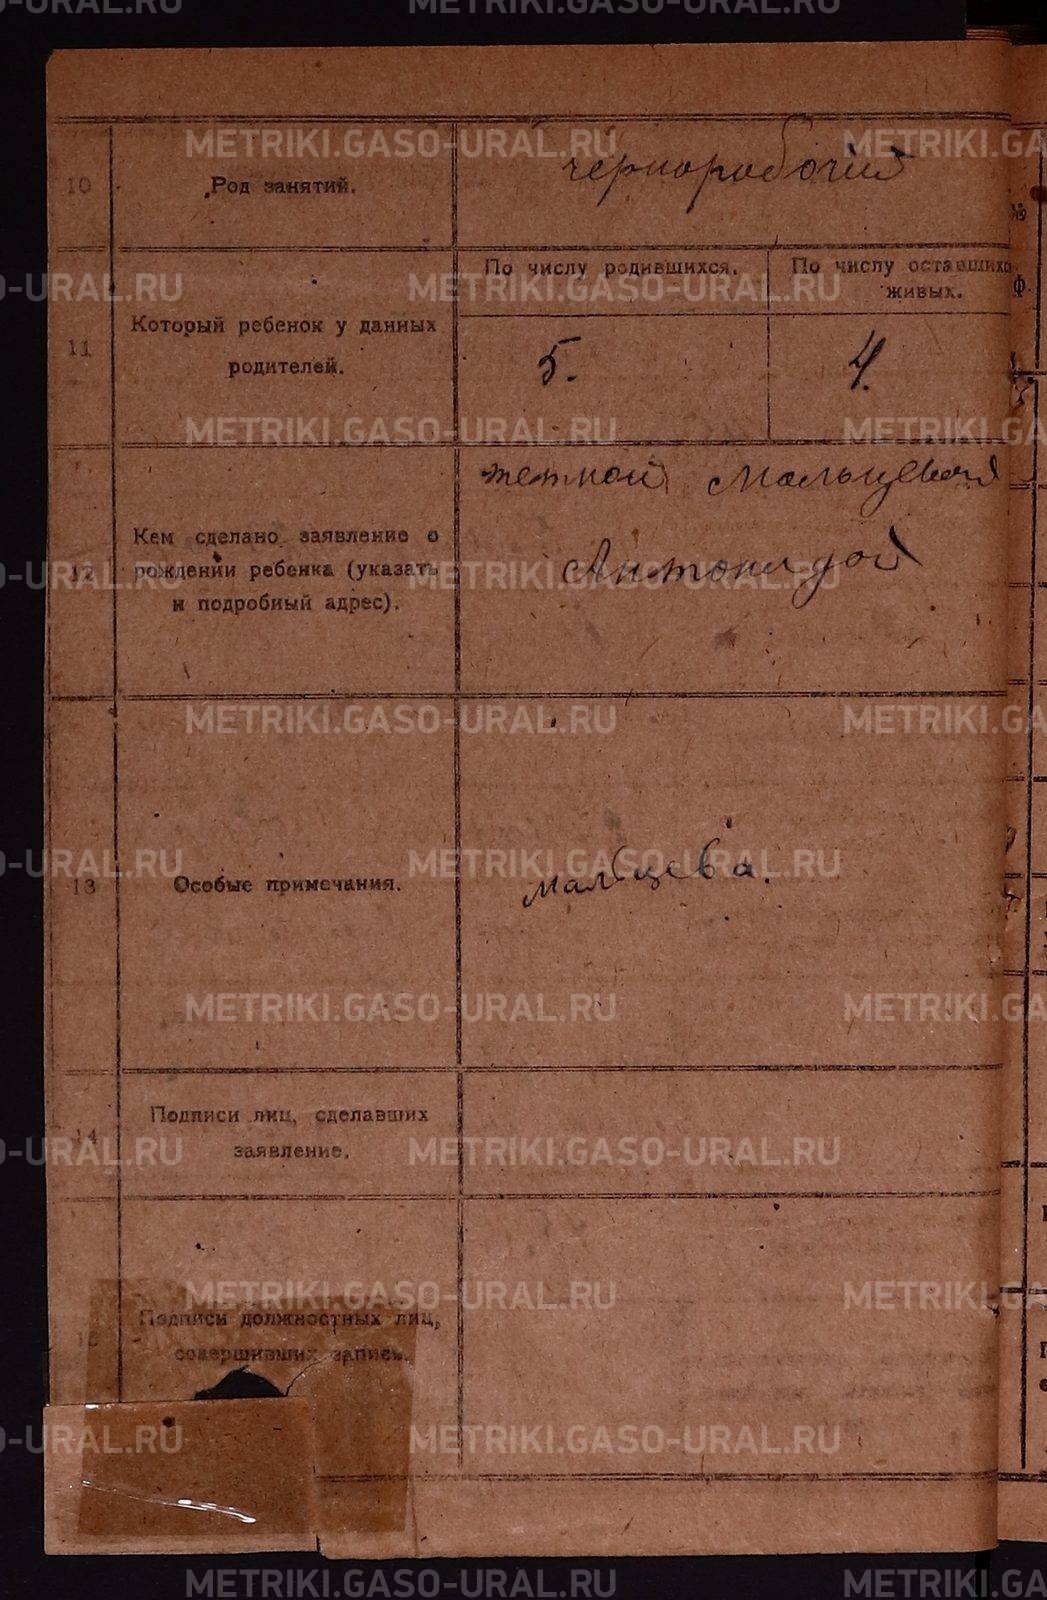 METRIKI.GASO-URAL.RU
10
Род занятий.
чернорабочий
11
Который ребенок у данных
родителей.
По числу родившихся.
По числу оставшихс
живых.
5.
4.
12
Кем сделано заявление о
рождении ребенка (указать
и подробный адрес).
теткой Мальцевой
Антонидой
13
Особые примечания.
мальцева.
14
Подписи лиц, сделавших
заявление.
15
Подписи должностных лиц,
совершивших запись.